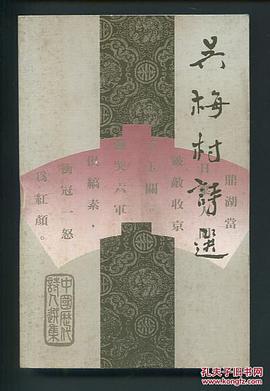 吳梅村詩選
鼎湖當
日
破敵收京
下玉關
慟哭六軍
俱縞素，
衝冠一怒
為紅顏。
中國歷代
詩人選集